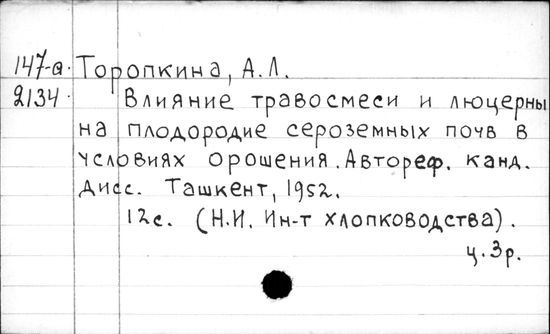 147-а. Торопкина, А.Л.
2134. Влияние травосмеси и люцерны
на плодородие сероземных почв в
условиях орошения. Автореф. канд.
дисс. Ташкент, 1952.
12с. (Н.И. Ин-т хлопководства).
ц.3р.